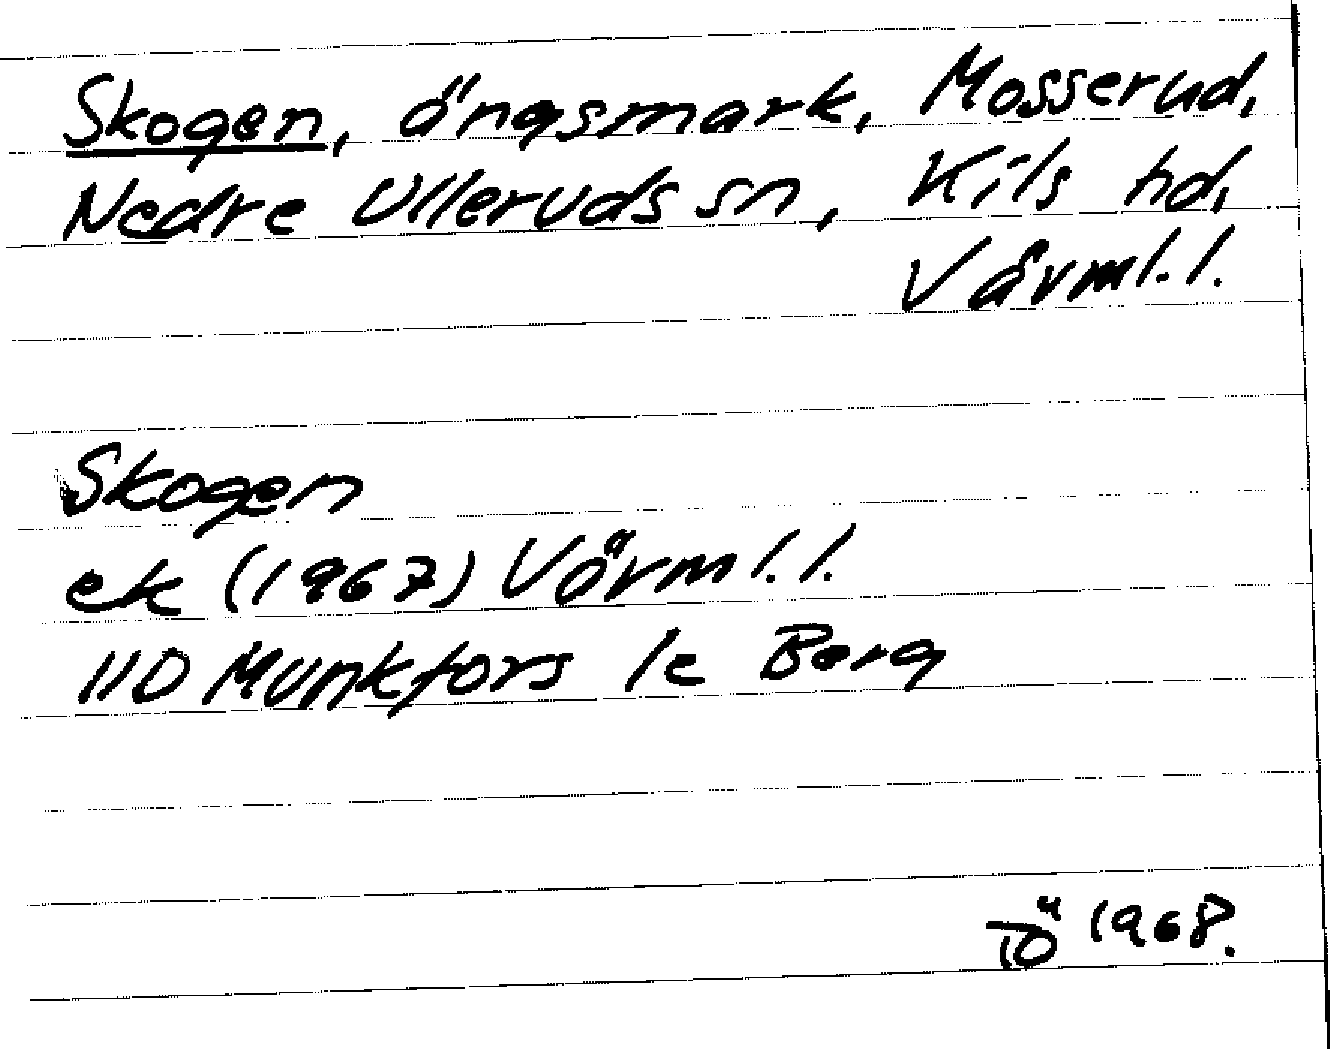 Skogen, ängsmark, Mosserud,
Nedre Ulleruds sn, Kils hd,
Värml. l.
Skogen
ek (1967) Värml. l.
11D Munkfors 1c Berg
TÖ 1968.